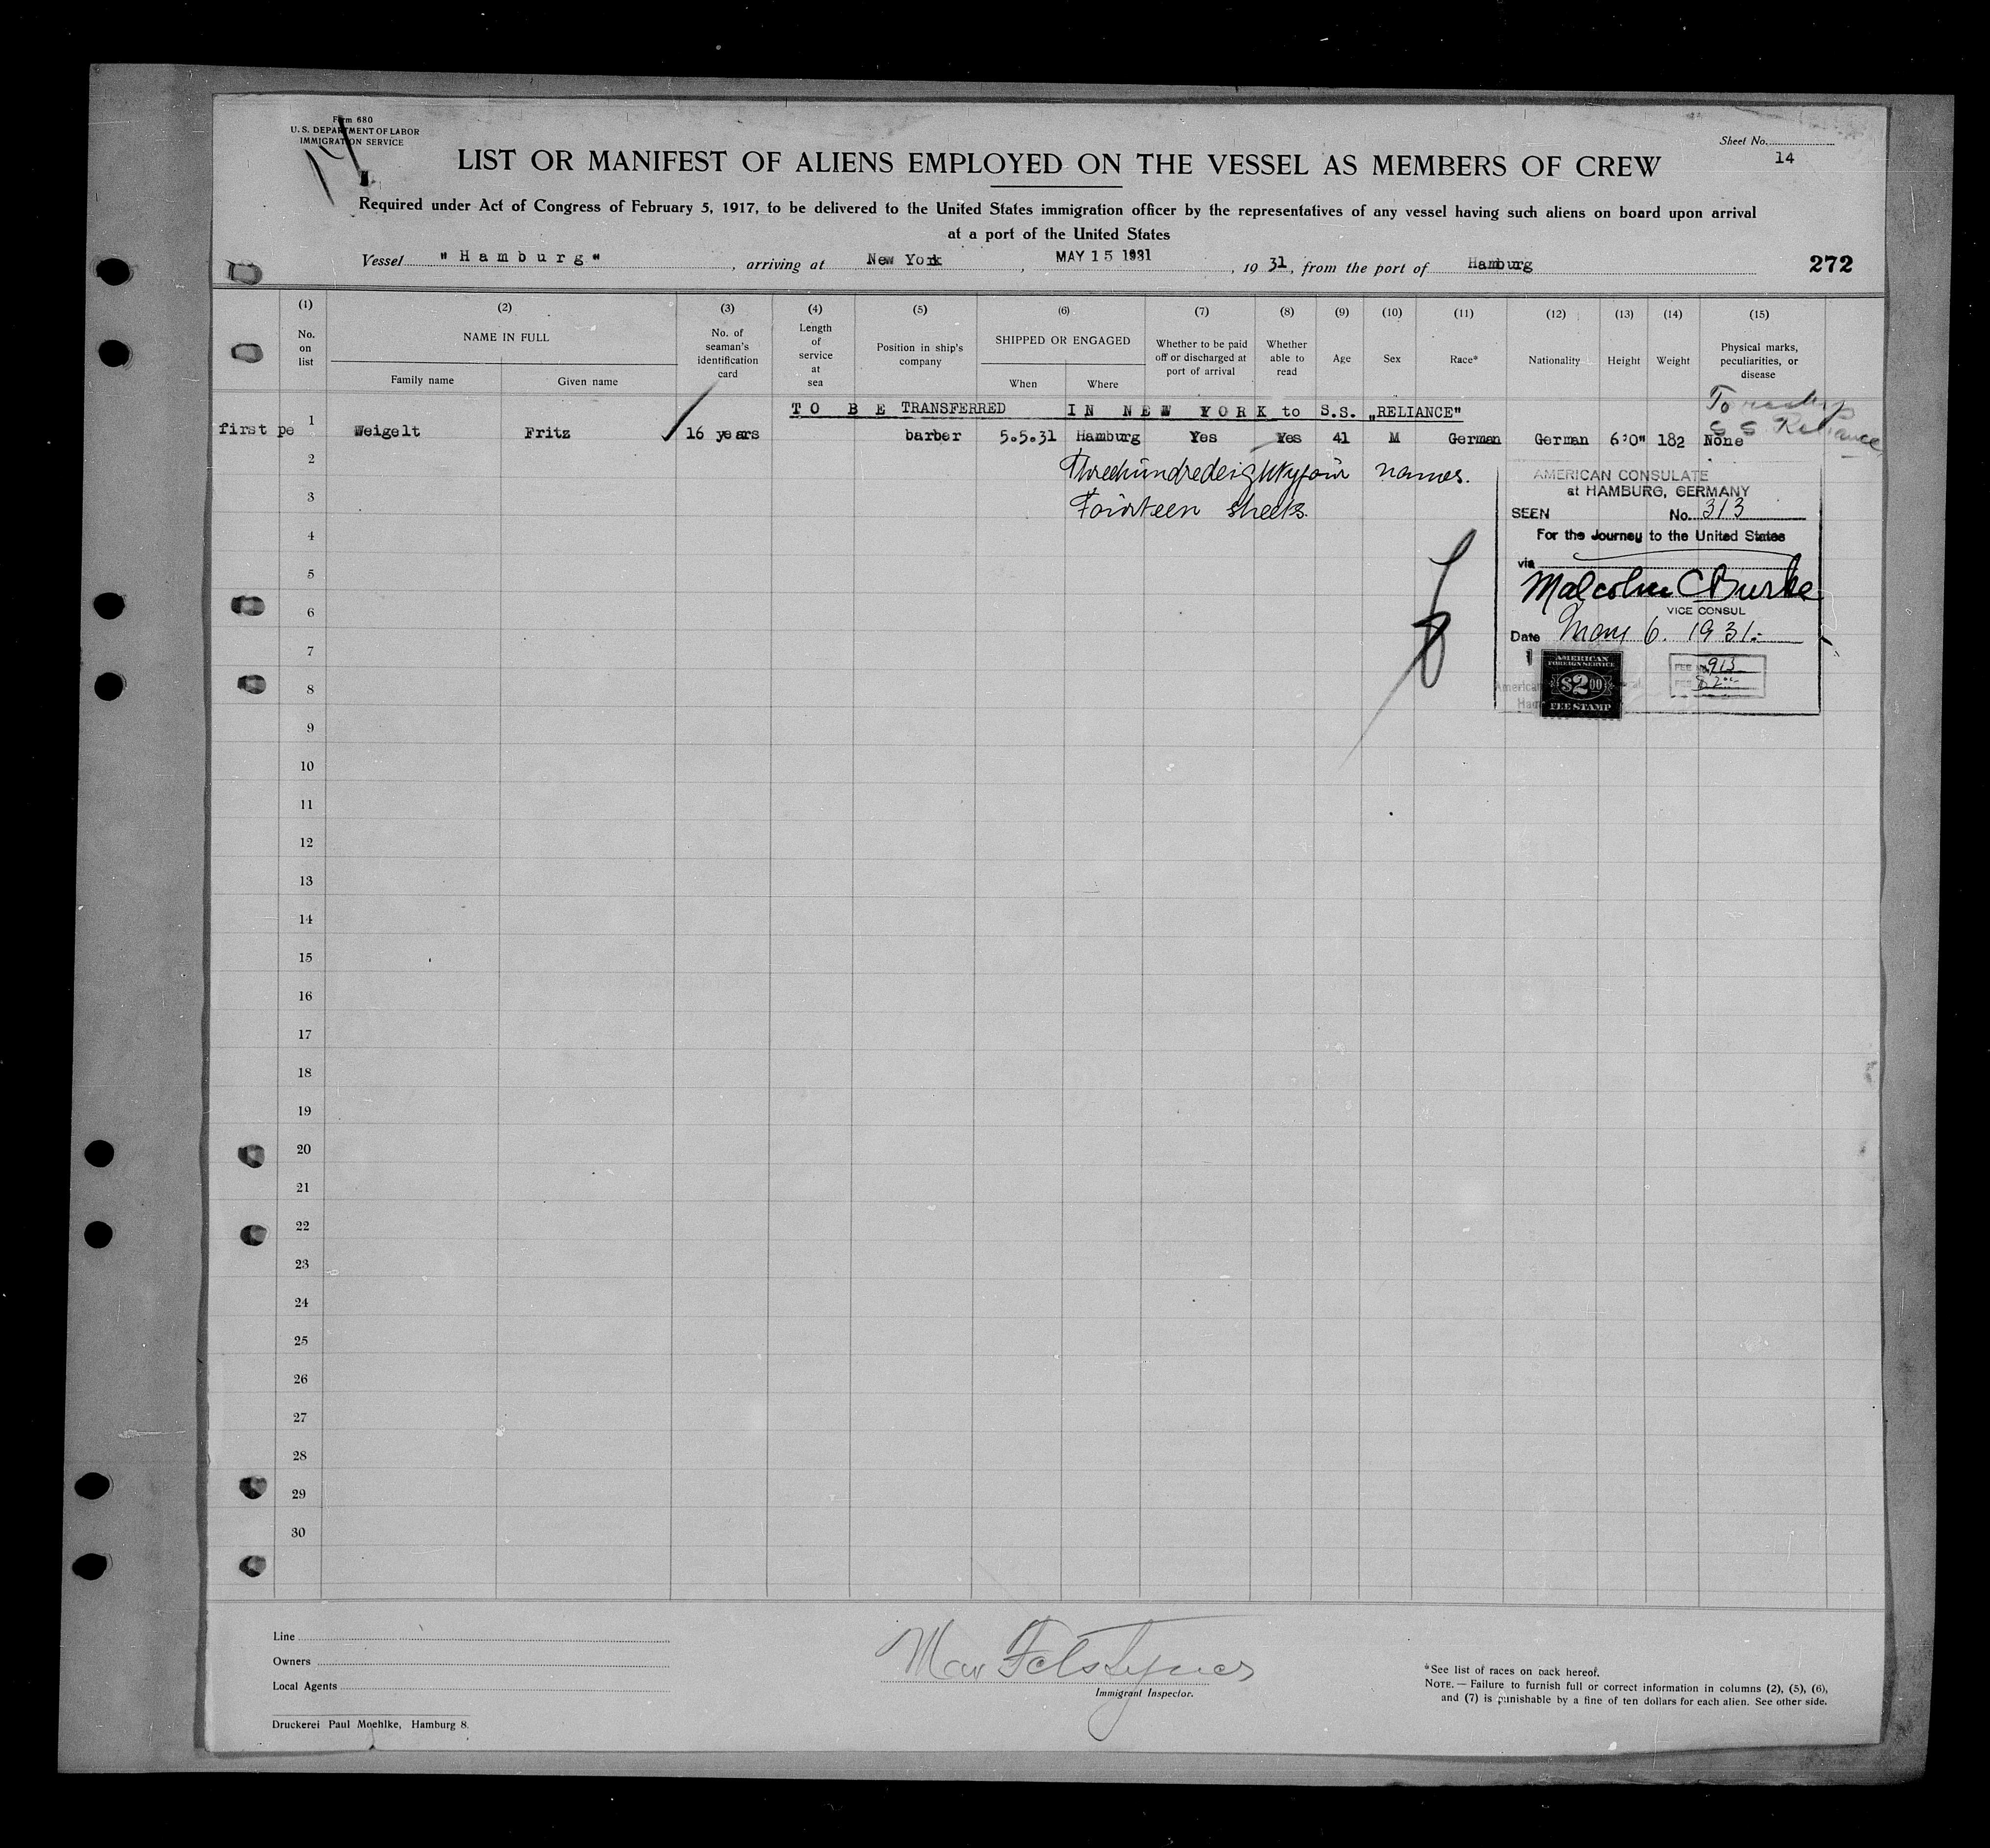 Form 680
U.S. DEPARTMENT OF LABOR
IMMIGRATION SERVICE
14
Sheet No.
14
LIST OR MANIFEST OF ALIENS EMPLOYED ON THE VESSEL AS MEMBERS OF CREW
Required under Act of Congress of February 5, 1917, to be delivered to the United States immigration officer by the representatives of any vessel having such aliens on board upon arrival
at a port of the United States
Vessel "Hamburg", arriving at New York, MAY 15 1931, 1931, from the port of Hamburg
272
(1) (2) (3) (4) (5) (6) (7) (8) (9) (10) (11) (12) (13) (14) (15)
No. on list
NAME IN FULL
Family name Given name
No. of seaman's identification card
Length of service at sea
Position in ship's company
SHIPPED OR ENGAGED
When Where
Whether to be paid off or discharged at port of arrival
Whether able to read
Age
Sex
Race*
Nationality
Height
Weight
Physical marks, peculiarities, or disease
TO BE TRANSFERRED IN NEW YORK to S.S. „RELIANCE"
To
S S Reliance
first pe 1 Weigelt Fritz 16 years barber 5.5.31 Hamburg Yes Yes 41 M German German 6'0" 182 None
2
Threehundredeightyfour names.
3
Fourteen sheets.
AMERICAN CONSULATE
at HAMBURG, GERMANY
SEEN No. 313
For the Journey to the United States
via
Malcolm C Burke
VICE CONSUL
Date May 6. 1931.
AMERICAN
FOREIGN SERVICE
$2.00
FEE STAMP
FEE No. 913
4
5
6
7
8
9
10
11
12
13
14
15
16
17
18
19
20
21
22
23
24
25
26
27
28
29
30
Line
Owners
Local Agents
Druckerei Paul Moehlke, Hamburg 8.
Immigrant Inspector.
*See list of races on back hereof.
NOTE.—Failure to furnish full or correct information in columns (2), (5), (6),
and (7) is punishable by a fine of ten dollars for each alien. See other side.